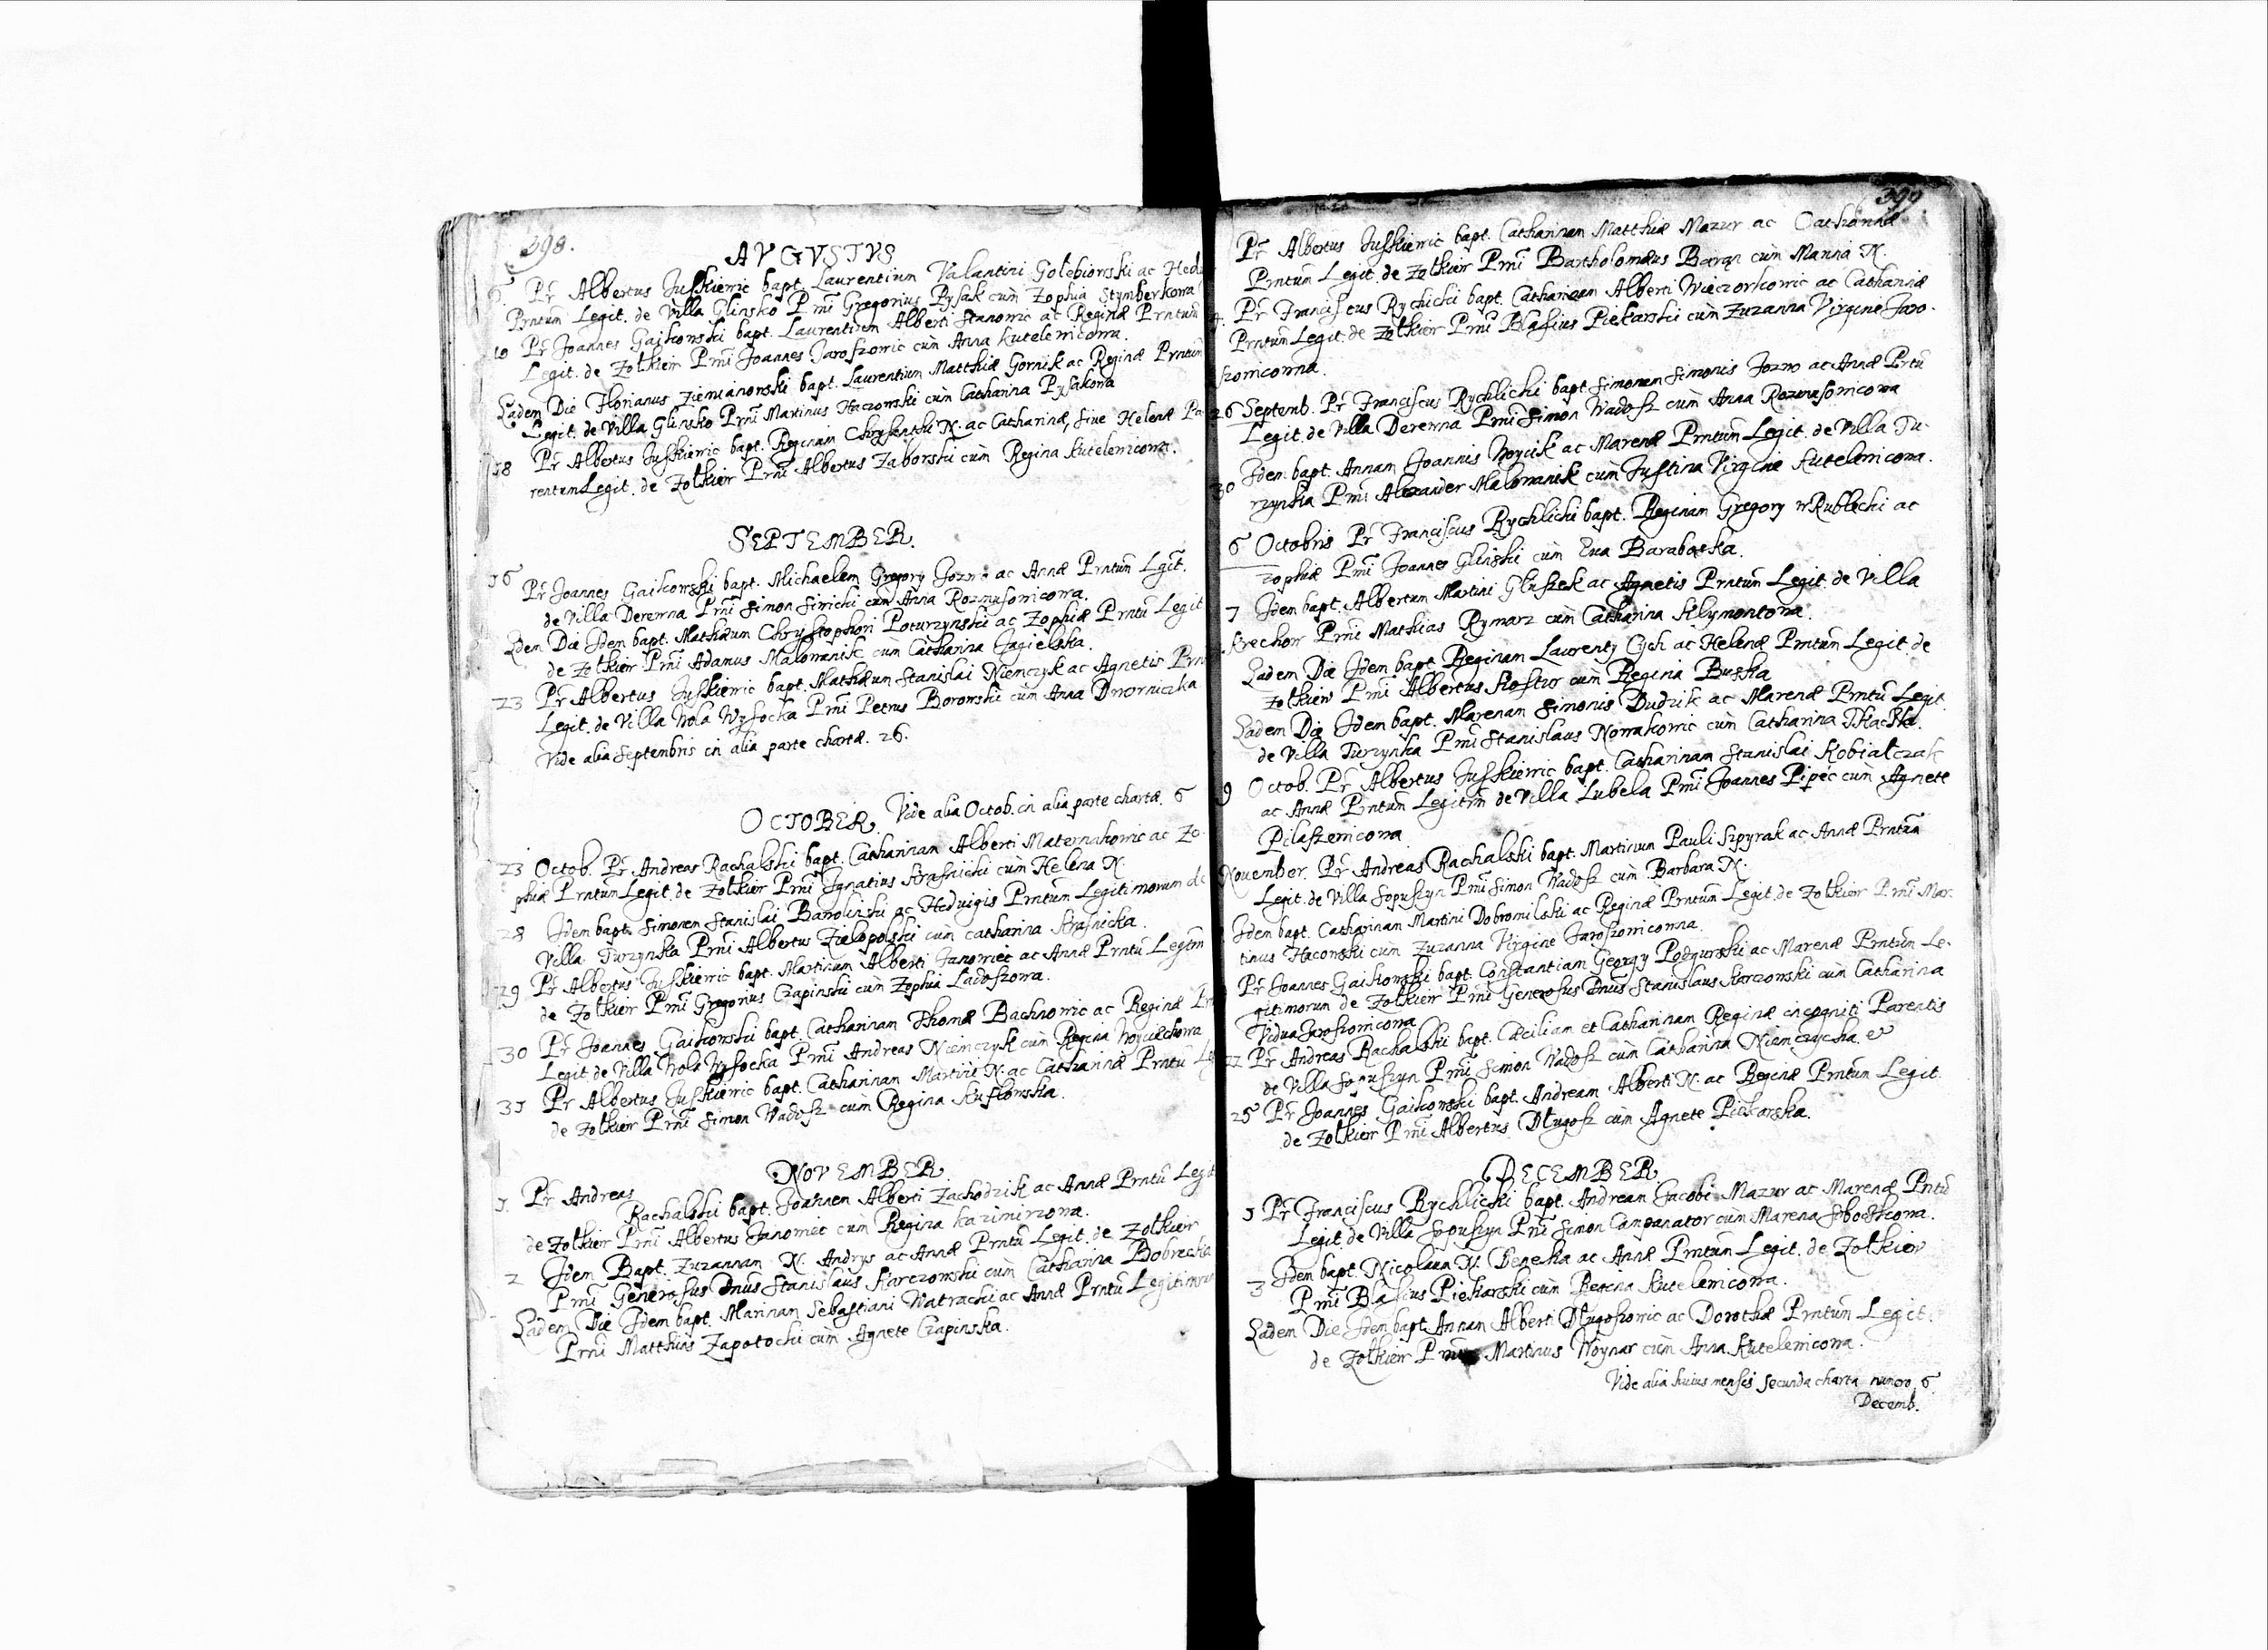 398.
AVGVSTVS
Pr Albertus Jusskiewic bapt. Laurentium Valantini Gołebiowski ac
Prntum Legit. de Villa Glinsko Prni Gregorius Pysak cum Zophia Stymberkowa
10 Pr Joannes Gaikowski bapt. Laurentium Alberti Stanowic ac Reginæ Prntum
Legit. de Zołkiew Prni Joannes Jaroszowic cum Anna Kutelewicowa.
Eadem Die Florianus Ziemianowski bapt. Laurentium Matthiæ Gornik ac Reginæ Prntum
Legit. de Villa Glinsko Prni Martinus Haczowski cum Catharina Pysakowa
18 Pr Albertus Jusskiewic bapt. Reginam Chrysentii N. ac Catharinæ, sive Helenæ Pa
rentum Legit. de Zołkiew Prni Albertus Zaborski cum Regina Kutelewicowa.
SEPTEMBER.
16 Pr Joannes Gaikowski bapt. Michaelem Gregory Jozwo ac Annæ Prntum Lgit.
de Villa Derewna Prni Simon Sirichi cum Anna Rozmusowicowa.
Eden Die Idem bapt. Mathæum Chrystophori Poturzynski ac Zophiæ Prntu Legit
de Zołkiew Prni Adamus Malowanik cum Catharina Jagielska.
23 Pr Albertus Jusskiewic bapt. Mathæum Stanislai Niemczyk ac Agnetis Prnt
Legit. de Villa Wola Wysocka Prni Petrus Borowski cum Anna Dworniczka
Vide alia Septembris in alia parte chartæ. 26.
OCTOBER. Vide alia Octob. in alia parte chartæ. 6
23 Octob. Pr Andreas Rachalski bapt. Catharinam Alberti Maternakowic ac Zo-
phiæ Prntum Legit. de Zołkiew Prni Ignatius Krasnicki cum Helena N.
28 Idem bapt. Simonem Stanislai Barolinski ac Hedvigis Prntum Legitimorum de
Villa Turzynka Prni Albertus Zielopolski cum Catharina Krasnicka.
29 Pr Albertus Jusskiewic bapt. Martinum Alberti Janowiec ac Annæ Prntu Legtim
de Zołkiew Prni Gregorius Czapinski cum Zophia Ladoszowa.
30 Pr Joannes Gaikowski bapt. Catharinam Thomæ Bachnowic ac Reginæ Pr
Legit de Villa Wola Wysocka Prni Andreas Niemczyk cum Regina Woyciechowa
31 Pr Albertus Jusskiewic bapt. Catharinam Martini N. ac Catharinæ Prntu Le
de Zołkiew Prni Simon Wadosz cum Regina Kuslowska.
NOVEMBER
1. Pr Andreas
Rachalski bapt. Joannem Alberti Zachodzik ac Annæ Prntu Legit
de Zołkiew Prni Albertus Janowiec cum Regina Kazimirzowa.
2 Idem Bapt. Zuzannam N. Andrys ac Annæ Prntu Legit. de Zołkiew
Prni Generosus Dnus Stanislaus Karczowski cum Catharina Bobrecka
Eadem Die Idem bapt. Marinam Sebastiani Watrachi ac Annæ Prntu Legitimoru
Prni Matthias Zapotochi cum Agnete Czapinska.
399
Pr Albertus Jusskiewic bapt. Catharinam Matthiæ Mazur ac Catharinæ
Prntum Legit. de Zołkiew Prni Bartholomæus Baran cum Marina N.
Pr Franciscus Rychlicki bapt. Catharinam Alberti Wieczorkowic ac Catharinæ
Prntum Legit. de Zołkiew Prni Blasius Piekarski cum Zuzanna Virgine Jaro-
szowicowna.
26 Septemb. Pr Franciscus Rychlicki bapt. Simonem Simonis Jozwo ac Annæ Prtu
Legit. de Villa Derewna Prni Simon Wadosz cum Anna Rozmusowicowa
30 Idem bapt. Annam Joannis Woycik ac Marenæ Prntum Legit. de Villa Tu-
rzynka Prni Alexander Malowanik cum Justina Virgine Kutelewicowa.
6 Octobris Pr Franciscus Rychlicki bapt. Reginam Gregory Rublecki ac
Zophiæ Prni Joannes Glinski cum Eva Barabaska.
7 Idem bapt. Albertum Martini Gluszek ac Agnetis Prntum Legit. de Villa
Krechow Prni Mathias Rymarz cum Catharina Klymontowa.
Eadem Die Idem bapt. Reginam Laurenty Cych ac Helenæ Prntum Legit. de
Zołkiew Prni Albertus Kostur cum Regina Buska
Eadem Die Idem bapt. Marenam Simonis Dudzik ac Marenæ Prntu Legit.
de Villa Turzynka Prni Stanislaus Nowakowic cum Catharina Tkaczka.
9 Octob. Pr Albertus Jusskiewic bapt. Catharinam Stanislai Kobiałczak
ac Annæ Prntum Legitim de Villa Lubela Prni Joannes Pipec cum Agnete
Pilaszewicowa.
November. Pr Andreas Rachalski bapt. Martinum Pauli Szpyrak ac Annæ Prntum
Legit. de Villa Sopuszyn Prni Simon Wadosz cum Barbara N.
Idem bapt. Catharinam Martini Dobromilski ac Reginæ Prntum Legit. de Zołkiew Prni Mar-
tinus Haconski cum Zuzanna Virgine Jaroszowiconna.
Pr Joannes Gaikowski bapt. Constantiam Georgy Podgurski ac Marenæ Prntum Le-
gitimorum de Zołkiew Prni Generosus Dnus Stanislaus Karczowski cum Catharina
Vidua Jaroszowicowa
22 Pr Andreas Rachalski bapt. Cæciliam et Catharinam Reginæ incogniti Parentis
de Villa Sopuszyn Prni Simon Wadosz cum Catharina Niemczycka. et
25 Pr Joannes Gaikowski bapt. Andream Alberti N. ac Reginæ Prntum Legit.
de Zołkiew Prni Albertus Długosz cum Agnete Piekarska.
DECEMBER
1 Pr Franciscus Rychlicki bapt. Andream Jacobi Mazur ac Marenæ Prntu
Legit. de Villa Sopuszyn Prni Simon Campanator cum Marena
3 Idem bapt. Nicolaum N. Deneka ac Annæ Prntum Legit. de Zołkiew
Prni Blasius Piekarski cum Regina Kutelewicowa.
Eadem Die Idem bapt Annam Alberti Długoszowic ac Dorothæ Prntum Legit.
de Zołkiew Martinus Woynar cum Anna Kutelewicowa.
Vide alia huius mensis secunda charta numero 6
Decemb.